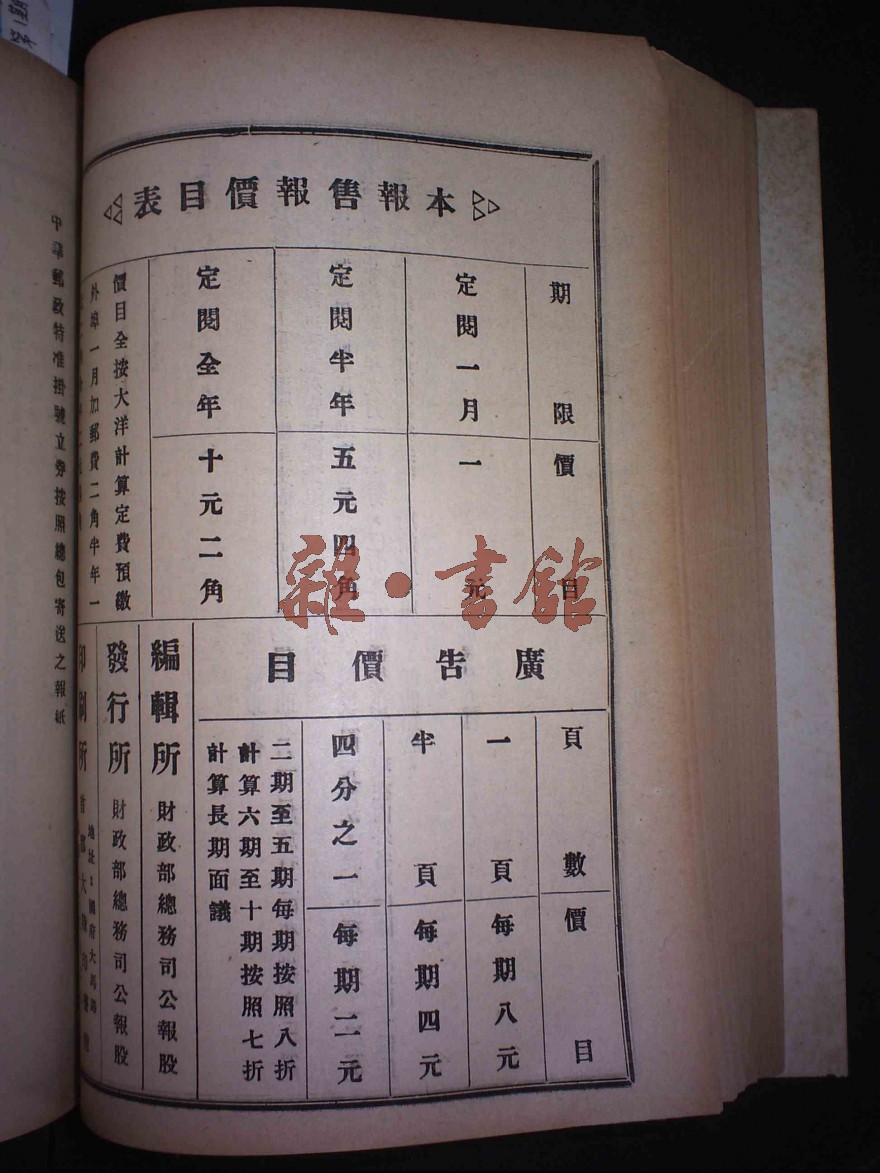 本報售報價目表
期限 價目
定閱一月 一元
定閱半年 五元四角
定閱全年 十元二角
價目全按大洋計算定費預繳
外埠一月加郵費二角半年一
廣告價目
頁數 價目
一頁 每期八元
半頁 每期四元
四分之一 每期二元
二期至五期每期按照八折
計算六期至十期按照七折
計算長期面議
編輯所 財政部總務司公報股
發行所 財政部總務司公報股
印刷所
地址：國府大馬路
中華郵政特准掛號立券按照總包寄送之報紙
雜·書館